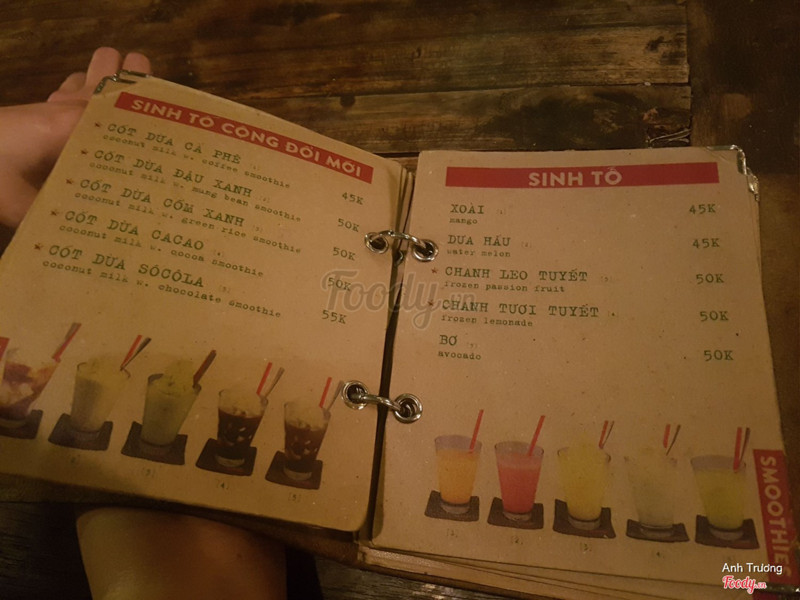 SINH TỐ CỘNG ĐỔI MỚI
* CỐT DỪA CÀ PHÊ
coconut milk w. coffee smoothie
45K
* CỐT DỪA ĐẬU XANH
coconut milk w. mung bean smoothie
50K
* CỐT DỪA CỐM XANH
coconut milk w. green rice smoothie
50K
* CỐT DỪA CACAO
coconut milk w. cocoa smoothie
50K
* CỐT DỪA SÔCÔLA
coconut milk w. chocolate smoothie
55K
SINH TỐ
XOÀI
mango
45K
DƯA HẤU
water melon
45K
* CHANH LEO TUYẾT
frozen passion fruit
50K
* CHANH TƯƠI TUYẾT
frozen lemonade
50K
BƠ
avocado
50K
SMOOTHIES
Foody.vn
Anh Trương
Foody.vn